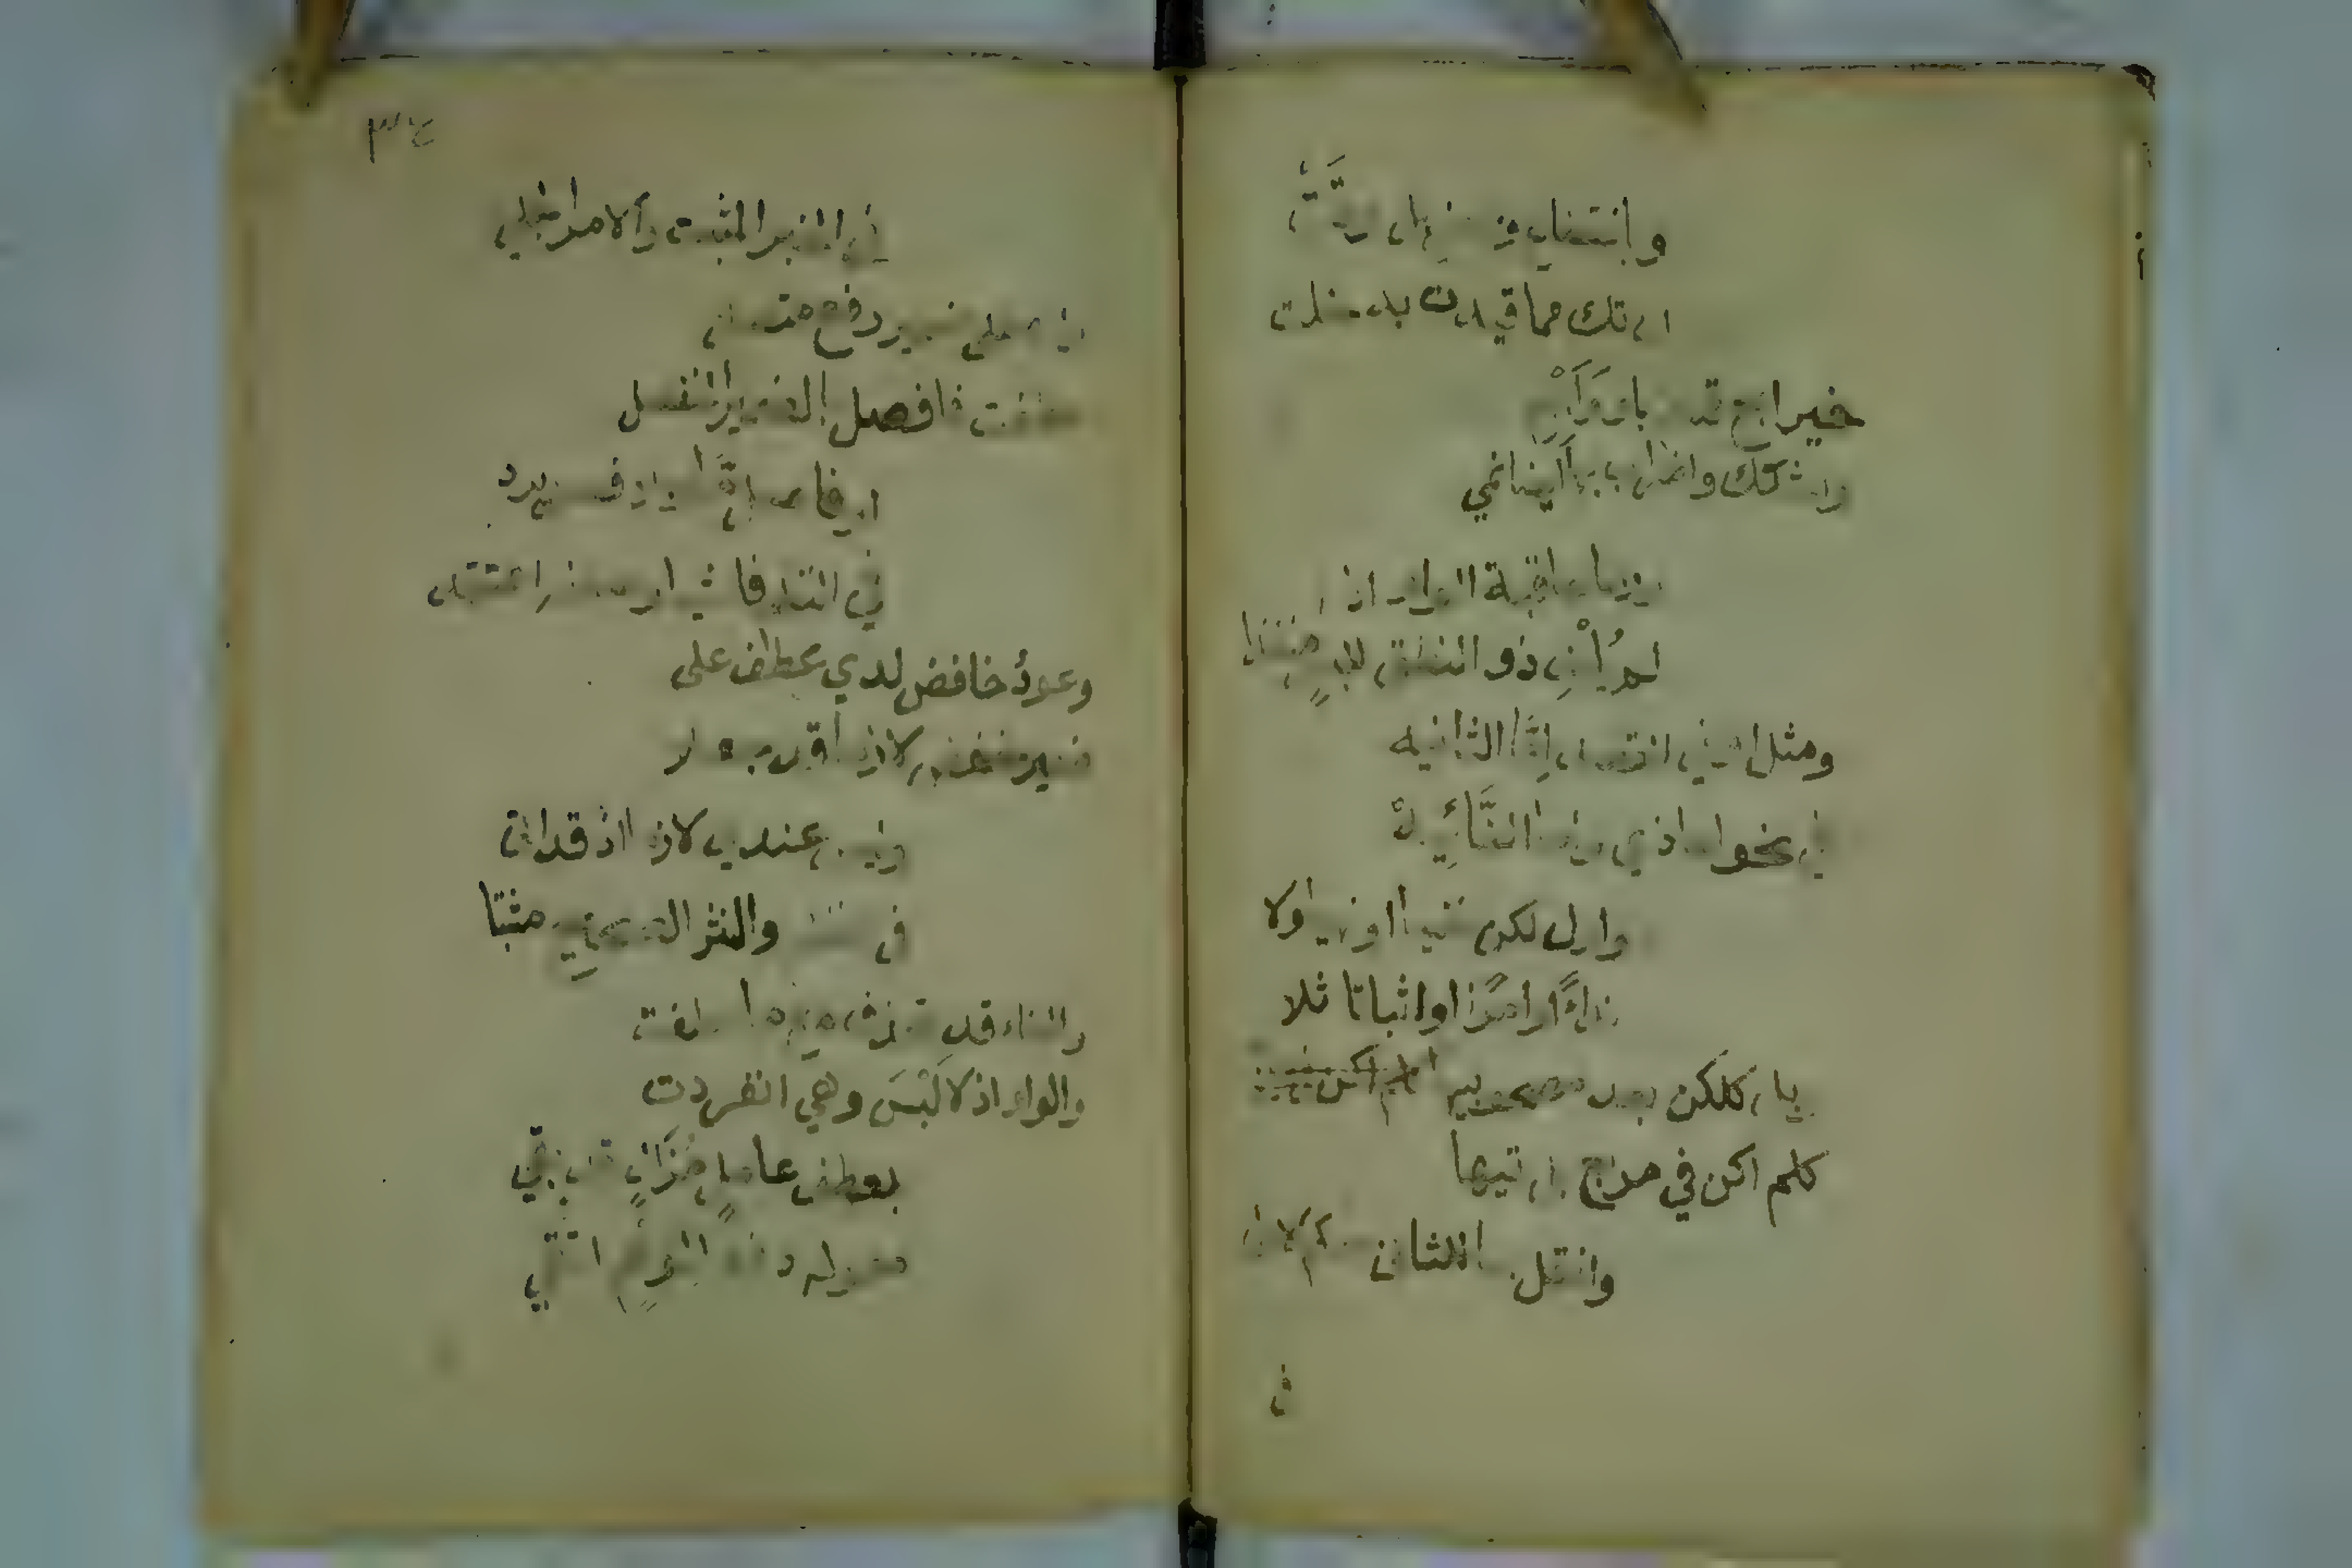 وبانقطاع وبمعنى بل وفت
ان تك مما قيدت به خلت
خير ابح قسم باو وابهم
واشكك واضراب بها ايضا نمي
وربما عاقبت الواو اذا
لم يلف ذو النطق للبس منفذا
ومثل او في القصد اما الثانيه
في نحو اما ذي واما النائيه
واول لكن نفيا او نهيا ولا
نداءً او امرًا او اثباتا تلا
وبل كلكن بعد مصحوبيها
كلم اكن في مربع بل تيها
وانقل بها للثان حكم الاول
ف
٣٤
في الخبر المثبت والامر الجلي
وان على ضمير رفع متصل
عطفت فافصل بالضمير المنفصل
او فاصل ما وبلا فصل يرد
في النظم فاشيا وضعفه اعتقد
وعود خافض لدى عطف على
ضمير خفض لازما قد جعلا
وليس عندي لازما اذ قد اتى
في النظم والنثر الصحيح مثبتا
والفاء قد تحذف مع ما عطفت
والواو اذ لا لَبْسَ وهي انفردت
بعطف عامل مزال قد بقي
معموله دفعا لوهم اتقي